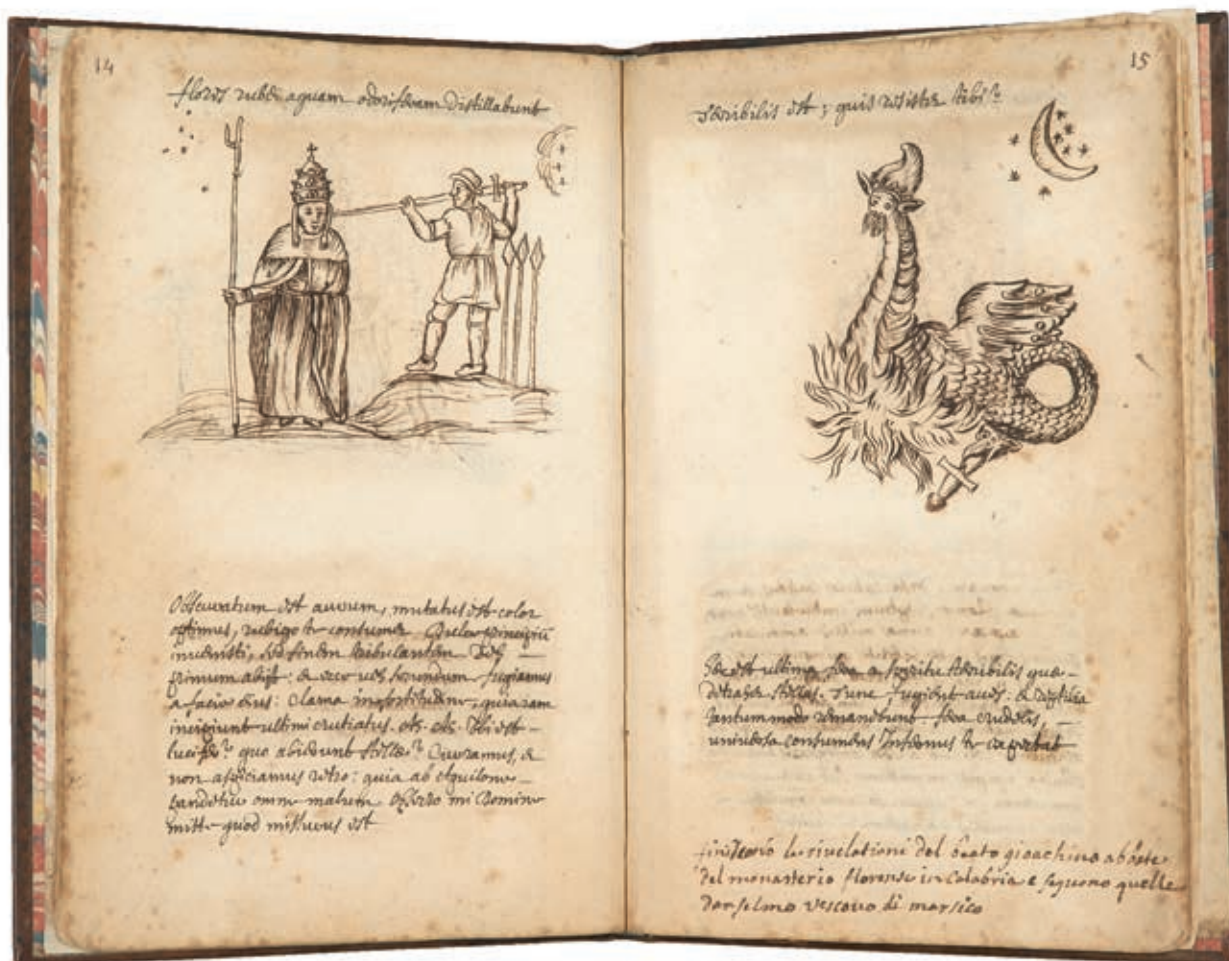 14
flores rubei aquam odoriferam distillabunt
Obscuratum est aurum, mutatus est color
optimus, rubigo te consumet. Dulce principiũ
invenisti, sed finem tribulantem
primum abiit: & vece ueh secundum fugiamus
a facie eius: Clama in fortitudine, quia iam
incipiunt ultimi crutiatus. Ubi est
lucifer? quo abierunt stelle? Curramus, &
non aspiciamus retro: quia ab Aquilone
pandetur omne malum. Obsecro mi Domine
mitte quem missurus es
15
Terribilis est; quis resistet tibi?
Hec est ultima fera aspectu terribilis que
detrahet stellas. Tunc fugient aves: & reptilia
tantummodo remanebunt fera crudelis,
universa consumens Infernus te expectat
finiscono le rivelationi del beato gioachino abbate
del monasterio florense in Calabria e seguono quelle
d'anselmo vescovo di marsico